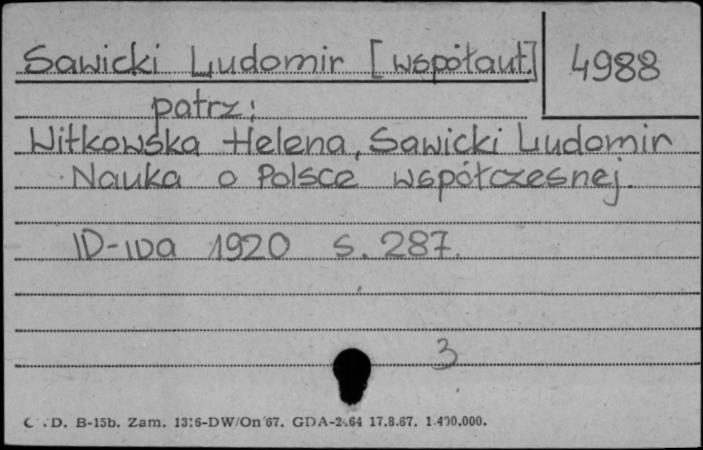 Sawicki Ludomir [współaut.] 4988
patrz:
Witkowska Helena, Sawicki Ludomir
Nauka o Polsce współczesnej.
W-wa 1920 s. 287.
3
D. B-15b. Zam. 1316-DW/On/67. GDA-2 64 17.8.67. 1.400.000.